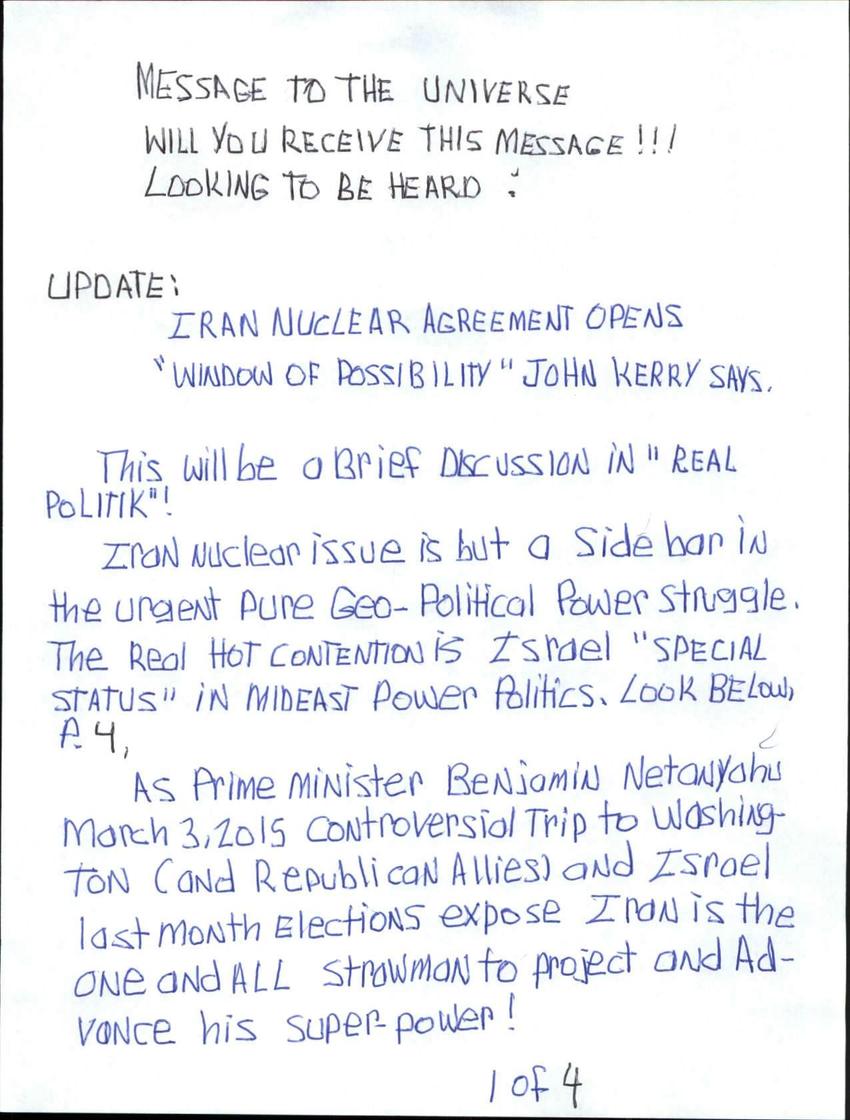 MESSAGE TO THE UNIVERSE
WILL YOU RECEIVE THIS MESSAGE!!!
LOOKING TO BE HEARD :
UPDATE:
IRAN NUCLEAR AGREEMENT OPENS
"WINDOW OF POSSIBILITY" JOHN KERRY SAYS.
This will be a Brief DISCUSSION IN "REAL
POLITIK"!
IRAN Nuclear issue is but a Side bar in
the urgent pure Geo-Political Power struggle.
The Real HOT CONTENTION is Israel "SPECIAL
STATUS" IN MIDEAST Power Politics. LOOK BELOW,
P. 4,
As Prime Minister Benjamin Netanyahu
March 3, 2015 controversial Trip to Washing-
TON (and Republican Allies) and Israel
last month Elections expose Iran is the
ONE and ALL Strawman to project and Ad-
vance his super-power!
1 of 4